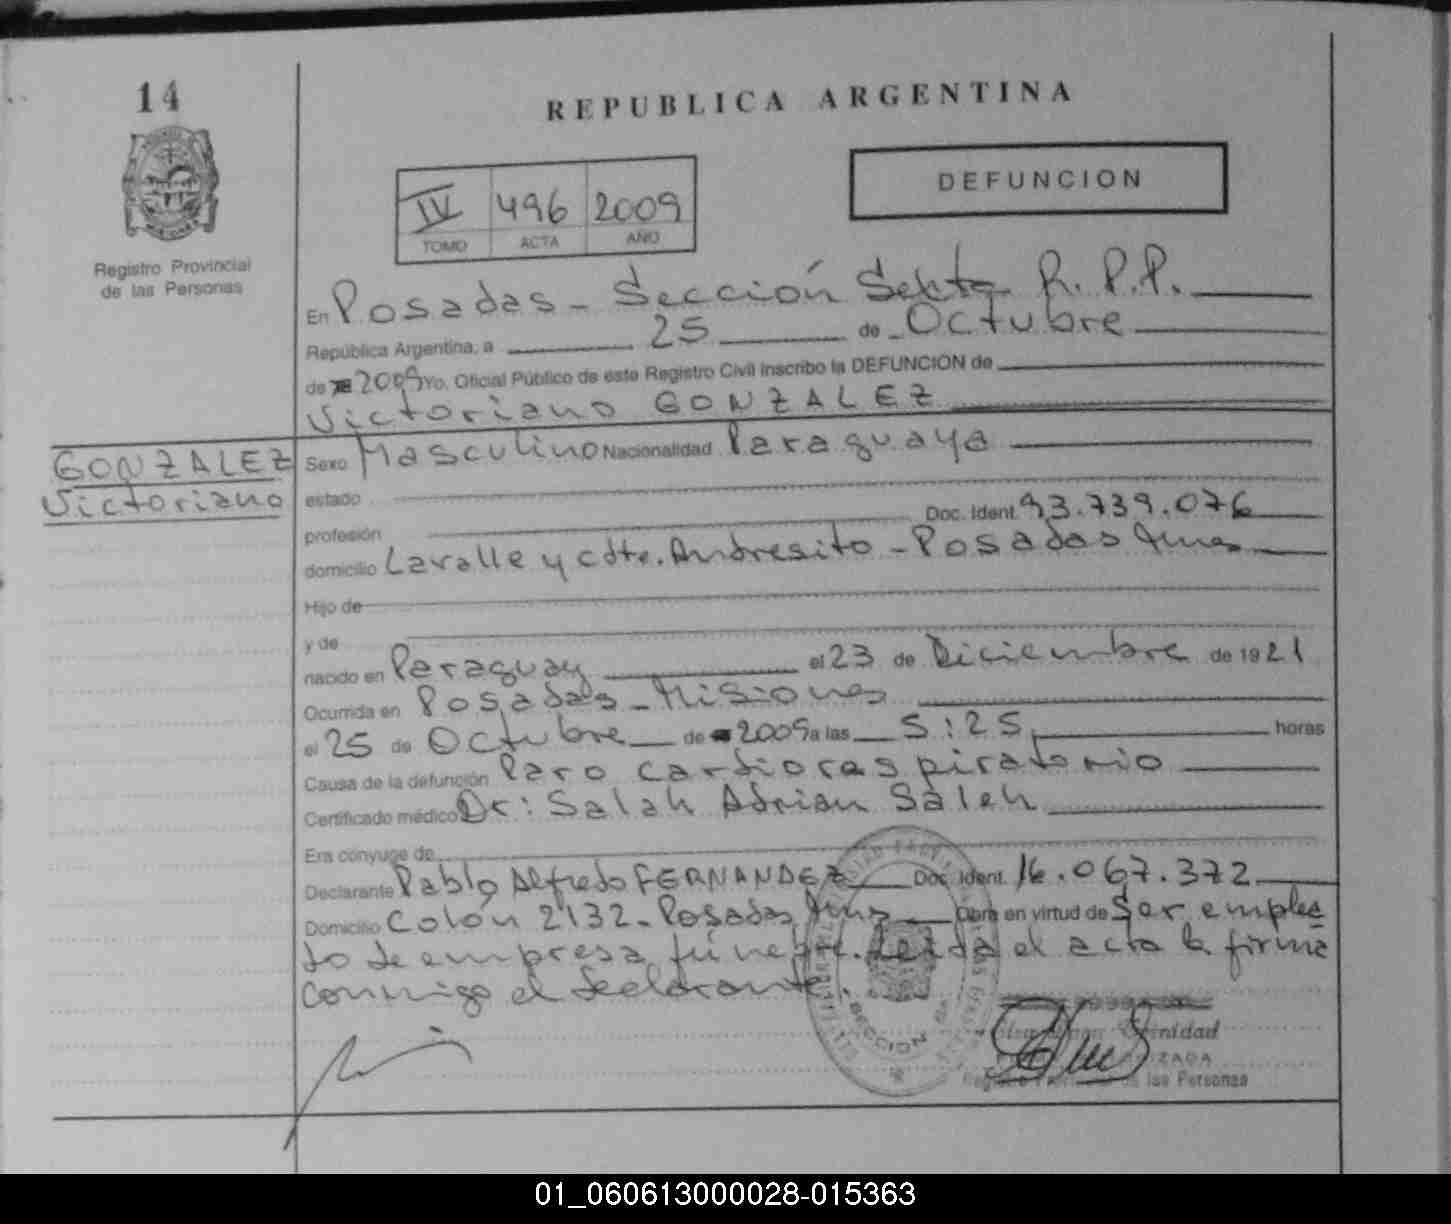 14
REPUBLICA ARGENTINA
DEFUNCION
IV 496 2009
TOMO ACTA AÑO
Registro Provincial
de las Personas
En Posadas - Sección Sexta R.P.P.
República Argentina, a 25 de Octubre
de 2009 Yo, Oficial Público de este Registro Civil inscribo la DEFUNCION de
Victoriano GONZALEZ
GONZALEZ
Victoriano
Sexo Masculino Nacionalidad Paraguaya
estado
profesión Doc. Ident. 93.739.076
domicilio Lavalle y cdte. Andresito - Posadas
Hijo de
y de
nacido en Paraguay el 23 de Diciembre de 1921
Ocurrida en Posadas - Misiones
el 25 de Octubre de 2009 a las 5:25 horas
Causa de la defunción Paro cardiorespiratorio
Certificado médico Dr: Salah Adrian Saleh
Era cónyuge de
Declarante Pablo Alfredo FERNANDEZ Doc. Ident. 16.067.372
Domicilio Colón 2132 - Posadas Obra en virtud de Ser emplea
do de empresa fúnebre. Leída el acta la firma
conmigo el declarante.
SECCION
Trinidad
las Personas
01_060613000028-015363